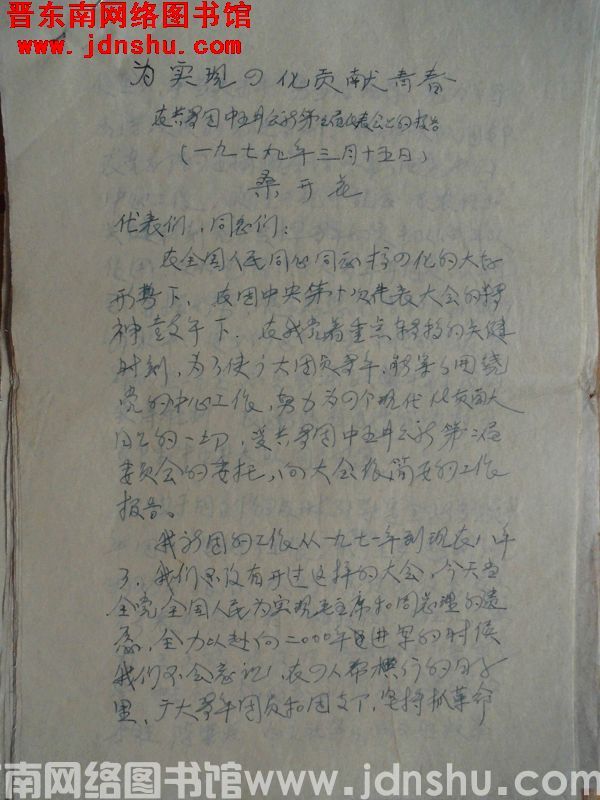 晋东南网络图书馆
www.jdnshu.com
为实现四化贡献青春
在共青团中五井公社第三届代表会上的报告
(一九七九年三月十五日)
桑开花
代表们,同志们:
在全国人民同心同德搞四化的大好
形势下,在团中央第十次代表大会的精
神鼓午下,在我党着重点转移的关键
时刻,为了使广大团员青年,紧围绕
党的中心工作,努力为四个现代化贡献
自己的一切,受共青团中五井公社第二届
委员会的委托,向大会做简要的工作
报告。
我社团的工作从一九七一年到现在八年
了,我们没有开过这样的大会,今天当
全党全国人民为实现毛主席和周总理的遗
愿,全力以赴向二000年进军的时候
我们不会忘记,在四人帮横行的日子
里,广大青年团员和团支下,坚持抓革命
晋东南网络图书馆 www.jdnshu.com